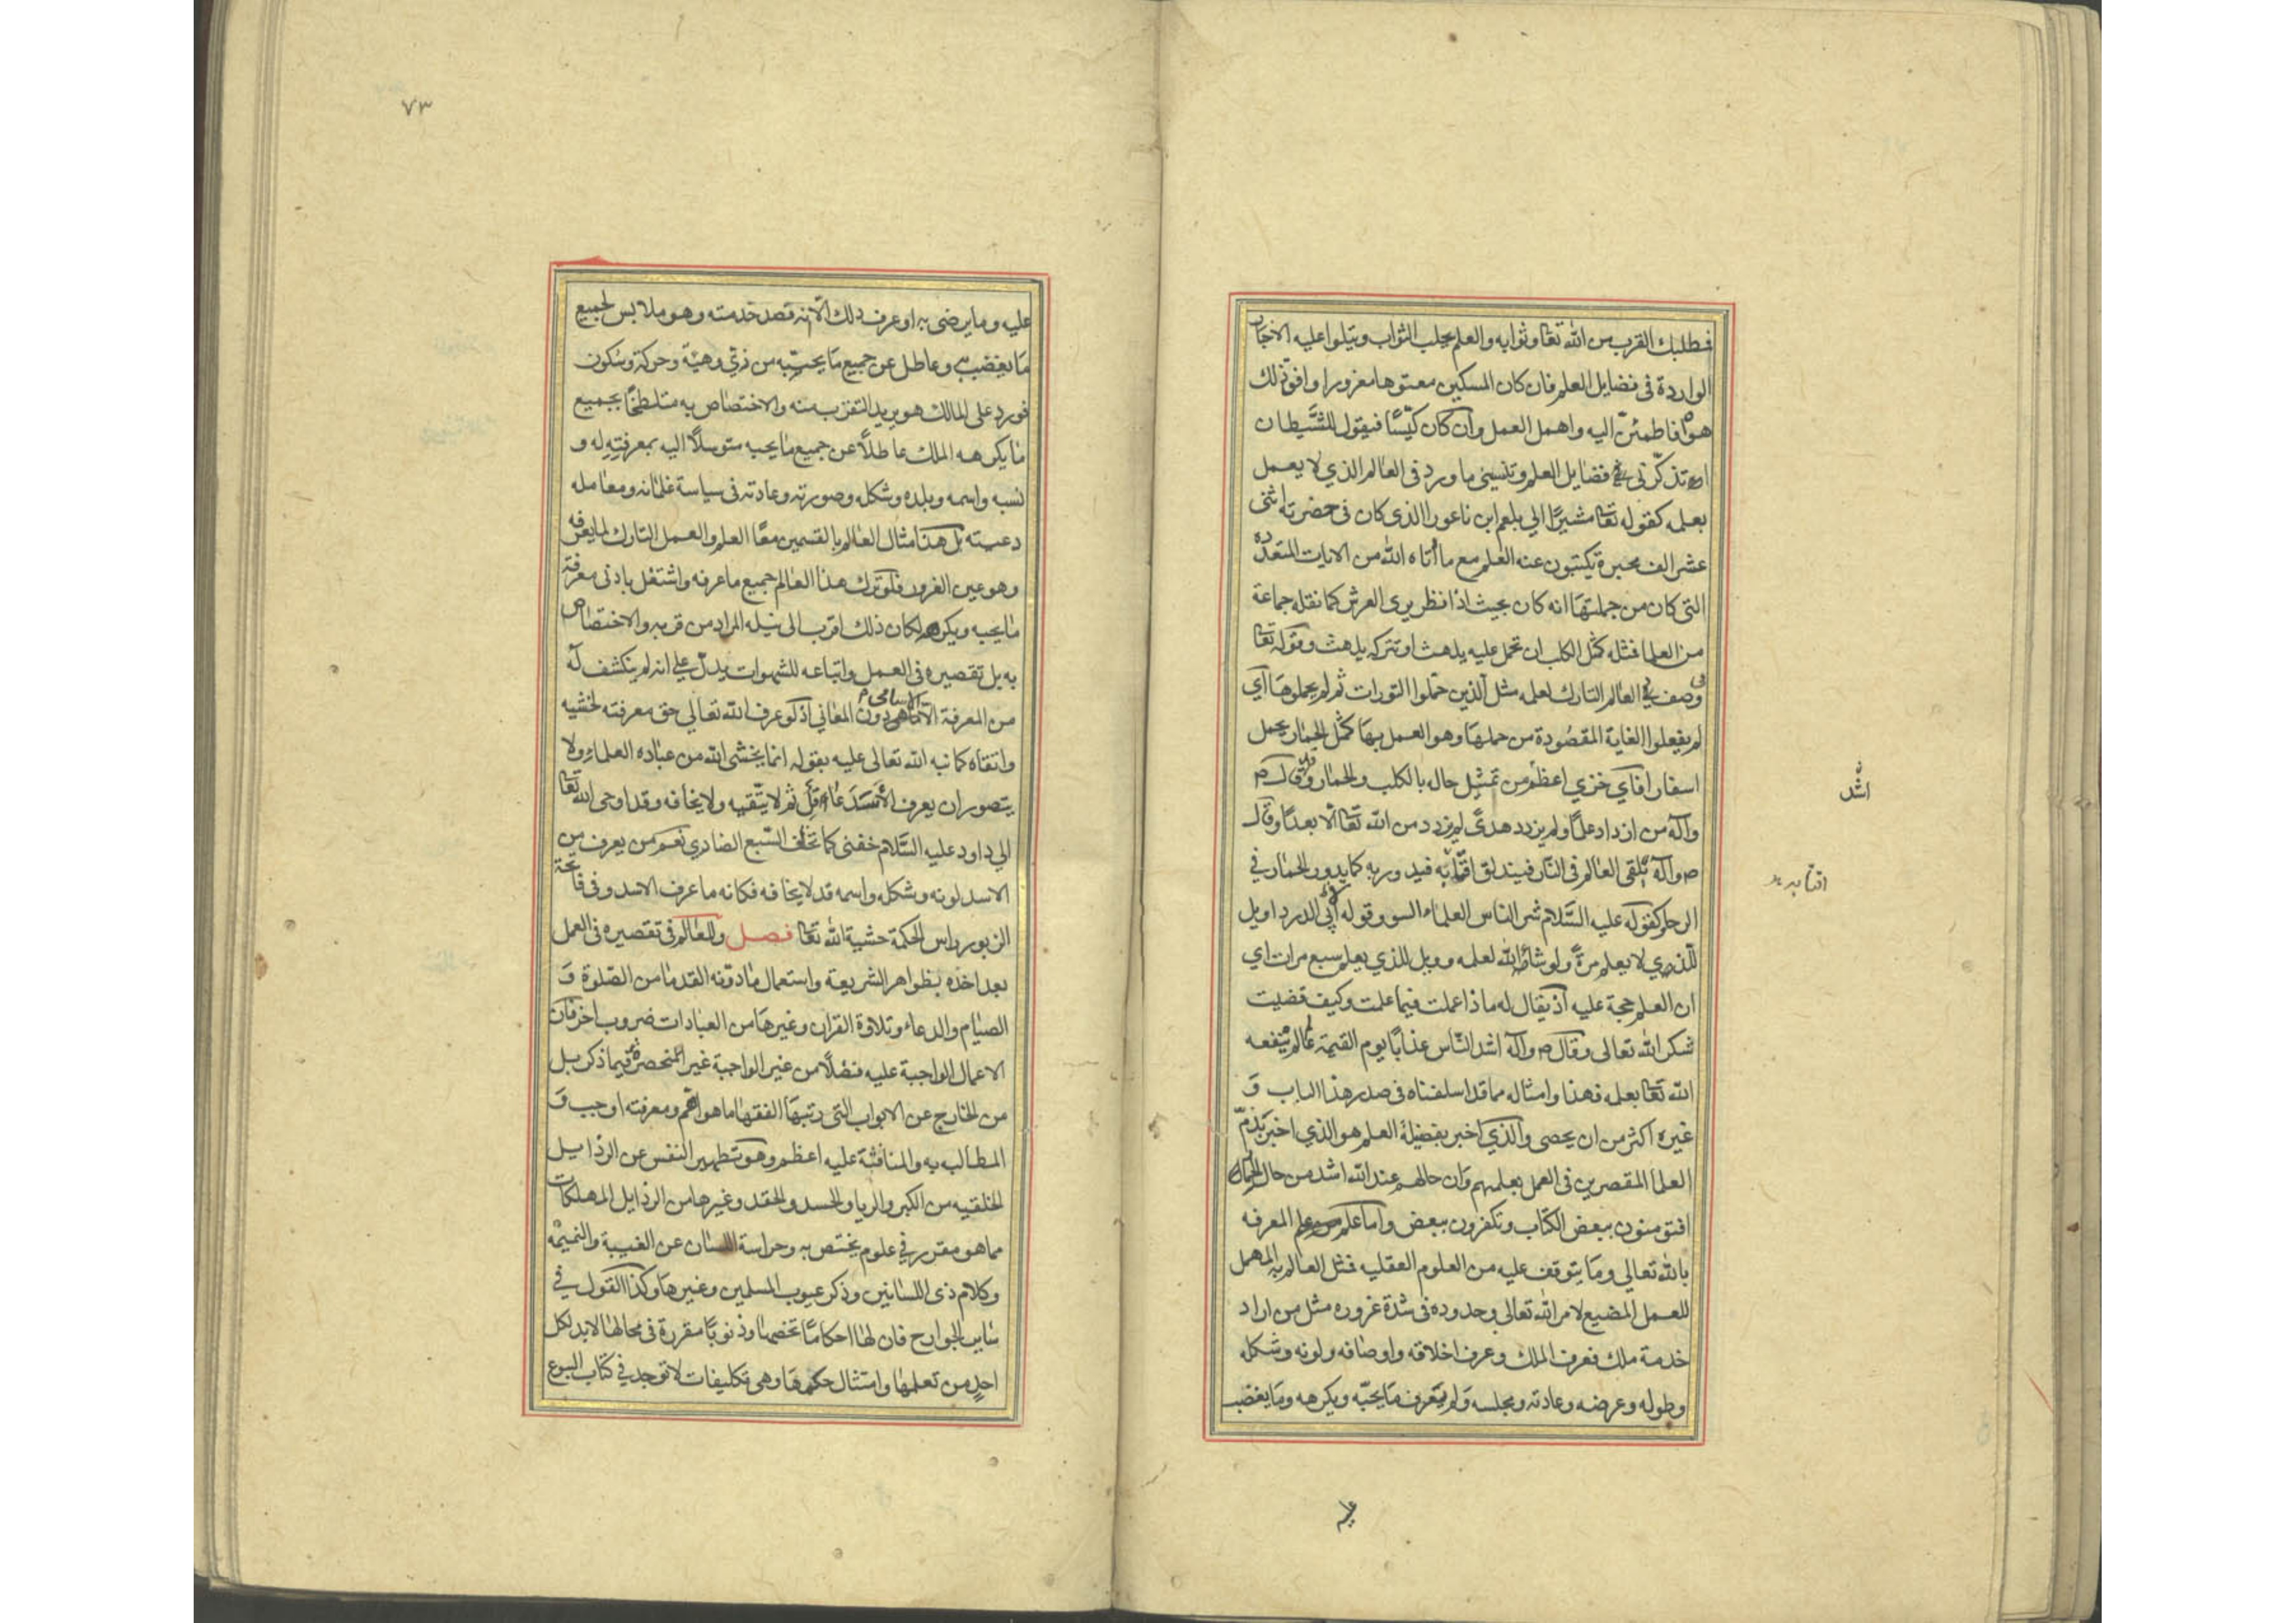 فطلبك القرب من الله تعا وثوابه والعلم يجلب الثواب ويتلوا عليه الاخبار
الواردة فى فضايل العلم فان كان المسكين معتوها مغرورا وافق ذلك
هواه فاطمئنّ اليه واهمل العمل وان كان كيّسًا فيقول للشّيطان
اتذكّرنى فضايل العلم وتنسينى ما ورد فى العالم الذي لا يعمل
بعلمه كقوله تعا مشيرًا الي بلعم ابن ناعورا الذى كان فى حضرته اثنى
عشر الف محبرة يكتبون عنه العلم مع ما اتاه الله من الايات المتعدّدة
التى كان من جملتها انه كان بحيث اذا نظر يرى العرش كما نقله جماعة
من العلما فمثله كمثل الكلب ان تحمل عليه يلهث او تتركه يلهث وقوله تعا
فى وصف العالم التارك لعلمه مثل الذين حمّلوا التورات ثم لم يحملوها اي
لم يفعلوا الغاية المقصودة من حملها وهو العمل بها كمثل الحمار يحمل
اسفارا فاي خزي اعظم من تمثيل حاله بالكلب والحمار وقد قال ص
وآله من ازداد علمًا ولم يزدد هدىً لم يزدد من الله تعا الا بعدًا وقال
ص وآله يلقى العالم فى النّار فيندلق اقتابه فيدور به كما يدور الحمار في
الرحى كقوله عليه السّلام شر الناس العلماء السو وقول ابى الدرداء ويل
للّذي لا يعلم مرة ولو شاء الله لعلمه وويل للذي يعلم سبع مرات اي
ان العلم حجة عليه اذ يقال له ماذا عملت فيما علمت وكيف قضيت
شكر الله تعالى وقال ص وآله اشد النّاس عذابًا يوم القيمة عالم لم ينفعه
الله تعا بعلمه فهذا وامثاله مما قد اسلفناه فى صدر هذا الباب وَ
غيره اكثر من ان يحصى والذي اخبر بفضيلة العلم هو الذي اخبر بذمّ
العلما المقصرين فى العمل بعلمهم وان حالهم عند الله اشد من حال الجهال
افتومنون ببعض الكتاب وتكفرون ببعض واما علم المعرفه
بالله تعالي وما يتوقف عليه من العلوم العقليه فمثل العالم به المهمل
للعمل المضيع لامر الله تعالي وحدوده فى شدة غروره مثل من اراد
خدمة ملك فعرف الملك وعرف اخلاقه واوصافه ولونه وشكله
وطوله وعرضه وعادته ومجلسه ولم يتعرف ما يحبّه ويكرهه وما يغضب
اشدّ
اقتابه
عليه
٧٣
عليه وما يرضى به او عرف ذلك الّا انه قصد خدمته وهو ملابس لجميع
ما يغضب به وعاطل عن جميع ما يحبّه من زيّ وهيئة وحركة وسكون
فورد على المالك هو يريد التقرب منه والاختصاص به متلطخًا بجميع
ما يكرهه الملك عاطلًا عن جميع ما يحبه متوسلًا اليه بمعرفته له و
نسبه واسمه وبلده وشكله وصورته وعادته فى سياسة غلمانه ومعامله
دعيته بل هذا مثال العالم بالقسمين معًا العلم والعمل التارك لما يعرفه
وهو عين الغرور فلو ترك هذا العالم جميع ما عرفه واشتغل بادنى معرفة
ما يحبه ويكرهه لكان ذلك اقرب الى نيله المراد من قربه والاختصاص
به بل تقصيره فى العمل واتباعه للشهوات يدلّ على انه لم ينكشف له
من المعرفة الّا الاسامى دون المعاني اذ لو عرف الله تعالي حق معرفته لخشيه
واتقاه كما نبه الله تعالى عليه بقوله انما يخشى الله من عباده العلماء ولا
يتصور ان يعرف الأسَدَ عاقل ثم لا يتّقيه ولا يخافه وقد اوحى الله تعا
الى داود عليه السّلام خفنى كما تخاف السّبع الضارى نعم من يعرف من
الاسد لونه وشكله واسمه قد لا يخافه فكانه ما عرف الاسد وفى فاتحة
الزبور راس الحكمة خشية الله تعا فصل وللعالم فى تقصيره فى العمل
بعد اخذه بظواهر الشريعة واستعمال ما دوّنه القدما من الصّلوة وَ
الصيام والدعاء وتلاوة القران وغيرها من العبادات ضروب اخر فان
الاعمال الواجبة عليه فضلًا من غير الواجبة غير المنحصرة فيما ذكر بل
من الخارج عن الابواب التى رتبها الفقها ما هو اهم ومعرفته اوجب وَ
المطالب به والمنافشة عليه اعظم وهو تطهير النفس عن الرذايل
الخلقيه من الكبر والريا والحسد والحقد وغيرها من الرذايل المهلكات
مما هو مقرر في علوم يختص به وحراسة اللسان عن الغيبة والنميمه
وكلام ذى اللسانين وذكر عيوب المسلمين وغيرها وكذا القول في
ساير الجوارح فان لها احكامًا تخصها وذنوبًا مقررة فى محالها لا بد لكل
احدٍ من تعلمها وامتثال حكمها وهى تكليفات لا توجد في كتاب البيوع